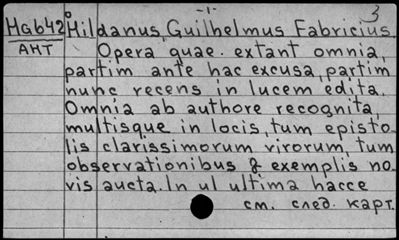 -1-
3
Наб42 Hildanus, Guilhelmus Fabricius.
АНТ Opera quae extant omnia,
partim ante hac excusa, partim
nunc recens in lucem edita.
Omnia ab authore recognita,
multisque in locis, tum episto
lis clarissimorum virorum, tum
observationibus & exemplis no
vis aucta. In ul ultima hacce
см. след. карт.